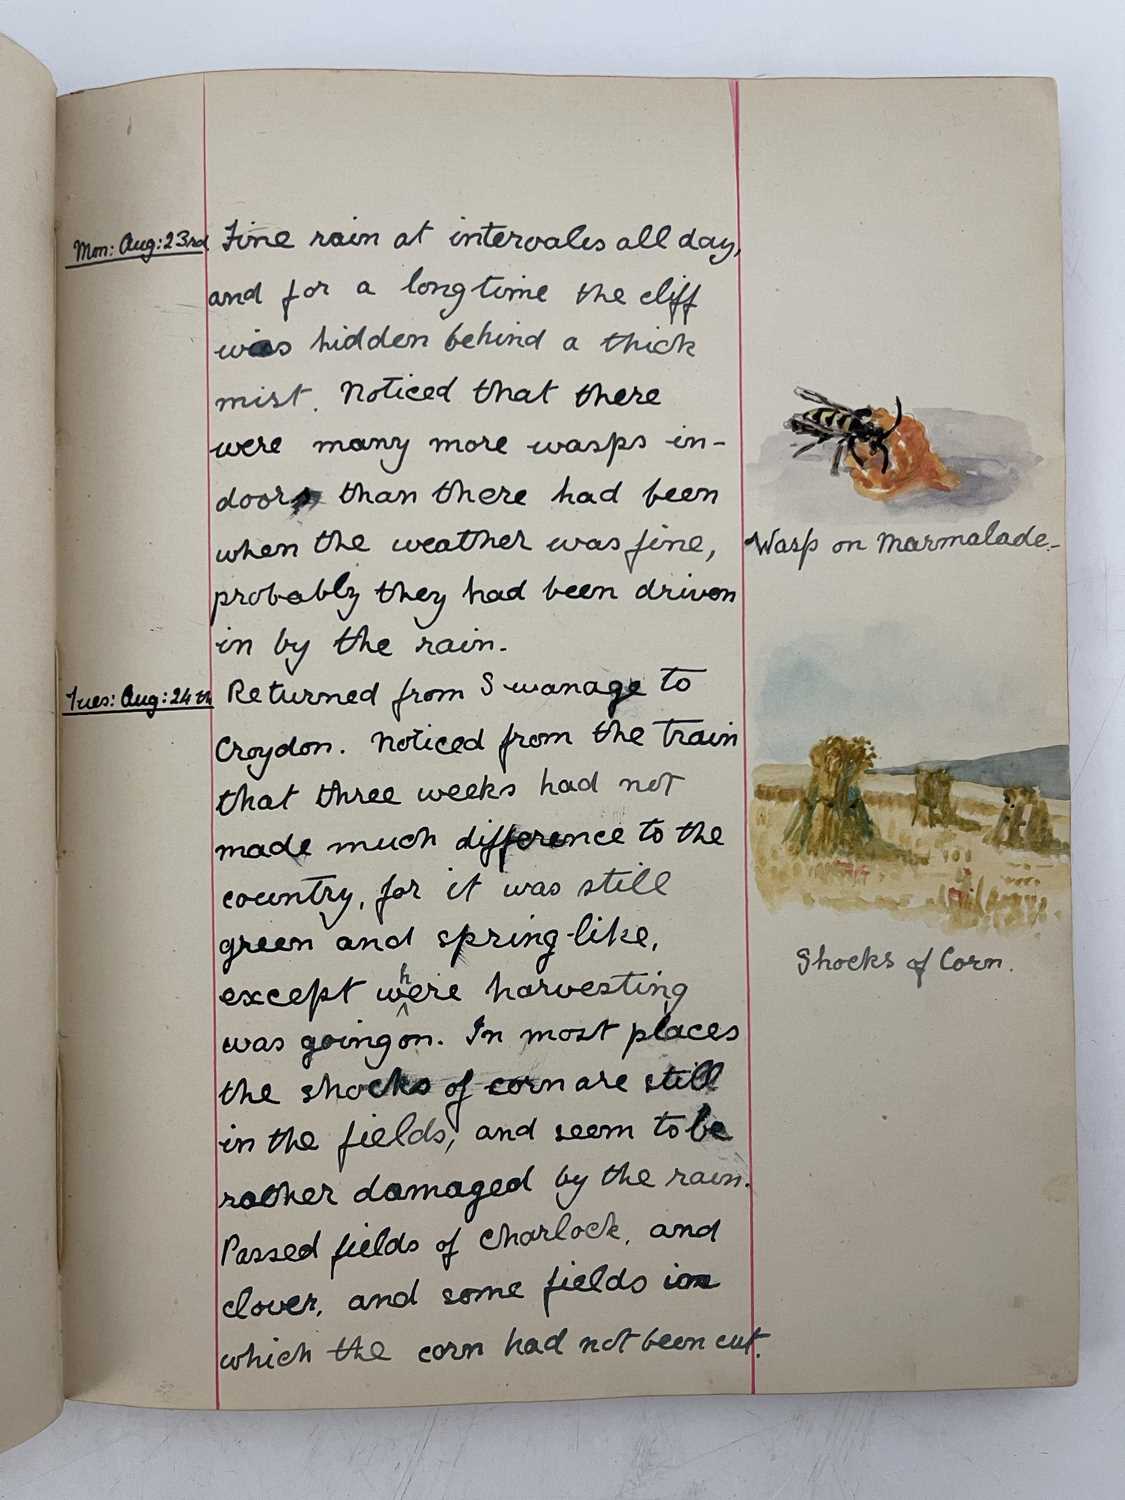 Mon: Aug: 23rd Fine rain at intervales all day,
and for a long time the cliff
was hidden behind a thick
mist. Noticed that there
were many more wasps in-
doors than there had been
when the weather was fine,
probably they had been driven
in by the rain.
Wasp on Marmalade.
Tues: Aug: 24th Returned from Swanage to
Croydon. Noticed from the train
that three weeks had not
made much difference to the
country, for it was still
green and spring-like,
except where harvesting
was going on. In most places
the shocks of corn are still
in the fields, and seem to be
rather damaged by the rain.
Passed fields of Charlock, and
clover, and some fields in
which the corn had not been cut.
Shocks of Corn.